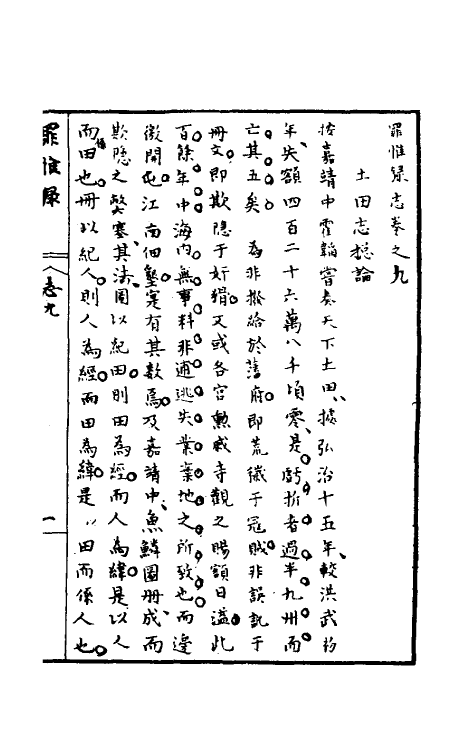 罪惟錄志卷之九
土田志總論
按嘉靖中霍韜嘗奏天下土田據弘治十五年較洪武初
年失額四百二十六萬八千頃零是虧折者過半九州而
亡其五矣為非撥給於藩府即荒穢于寇賊非誤訛于
冊文即欺隱于奸猾又或各宮勳戚寺觀之賜額日溢此
百餘年中海內無事料非逋逃失業棄地之所致也而邊
徼開屯江南佃墾寔有其數焉及嘉靖中魚鱗圖冊成而
欺隱之弊塞其法圖以紀田則田為經而人為緯是以人
而田也冊以紀人則人為經而田為緯是以田而係人也
罪惟錄
志九
一